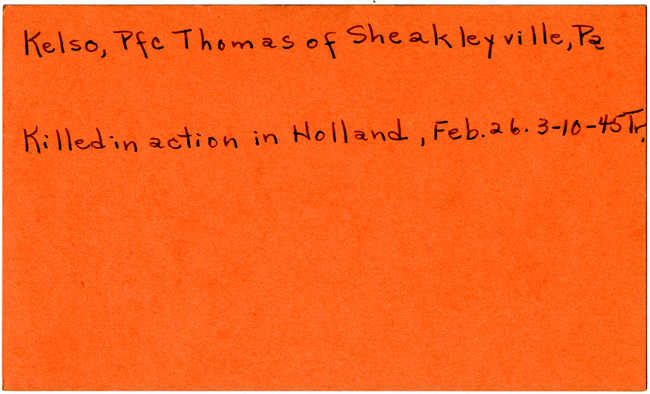 Kelso, Pfc Thomas of Sheakleyville, Pa
Killed in action in Holland, Feb. 26. 3-10-45 Tr.